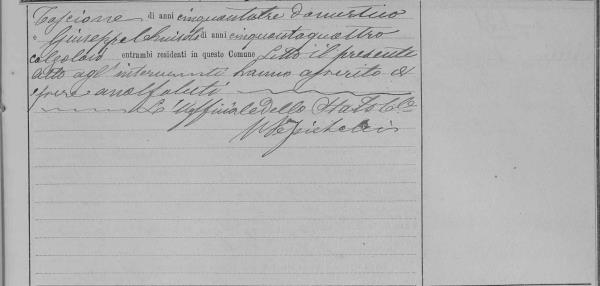 Tascione di anni cinquantatre domestico
e Giuseppe Chiusolo di anni cinquantaquattro
calzolaio entrambi residenti in questo Comune Letto il presente
atto agl'intervenuti hanno asserito di
essere analfabeti
L'Uffiziale dello Stato Cle